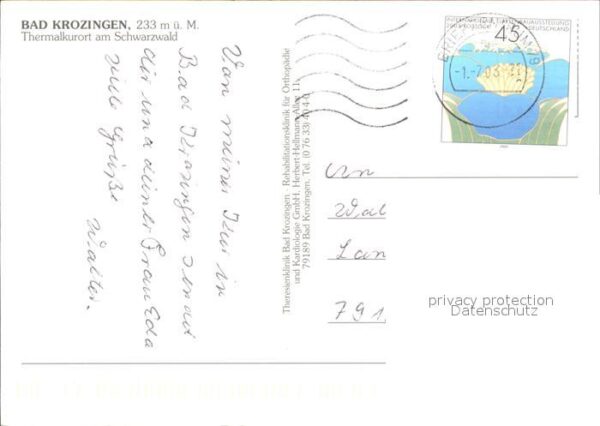 BAD KROZINGEN, 233 m ü. M.
Thermalkurort am Schwarzwald
Von meiner Kur in
Bad Krozingen sendet
dir und deiner Frau Eda
viele Grüße
Walter.
Theresienklinik Bad Krozingen · Rehabilitationsklinik für Orthopädie
und Kardiologie GmbH, Herbert-Hellmann-Allee 11,
79189 Bad Krozingen, Tel. (0 76 33) 40 4-0
45
DEUTSCHLAND
-1.-7.03
An
Wal
Lan
791
privacy protection
Datenschutz